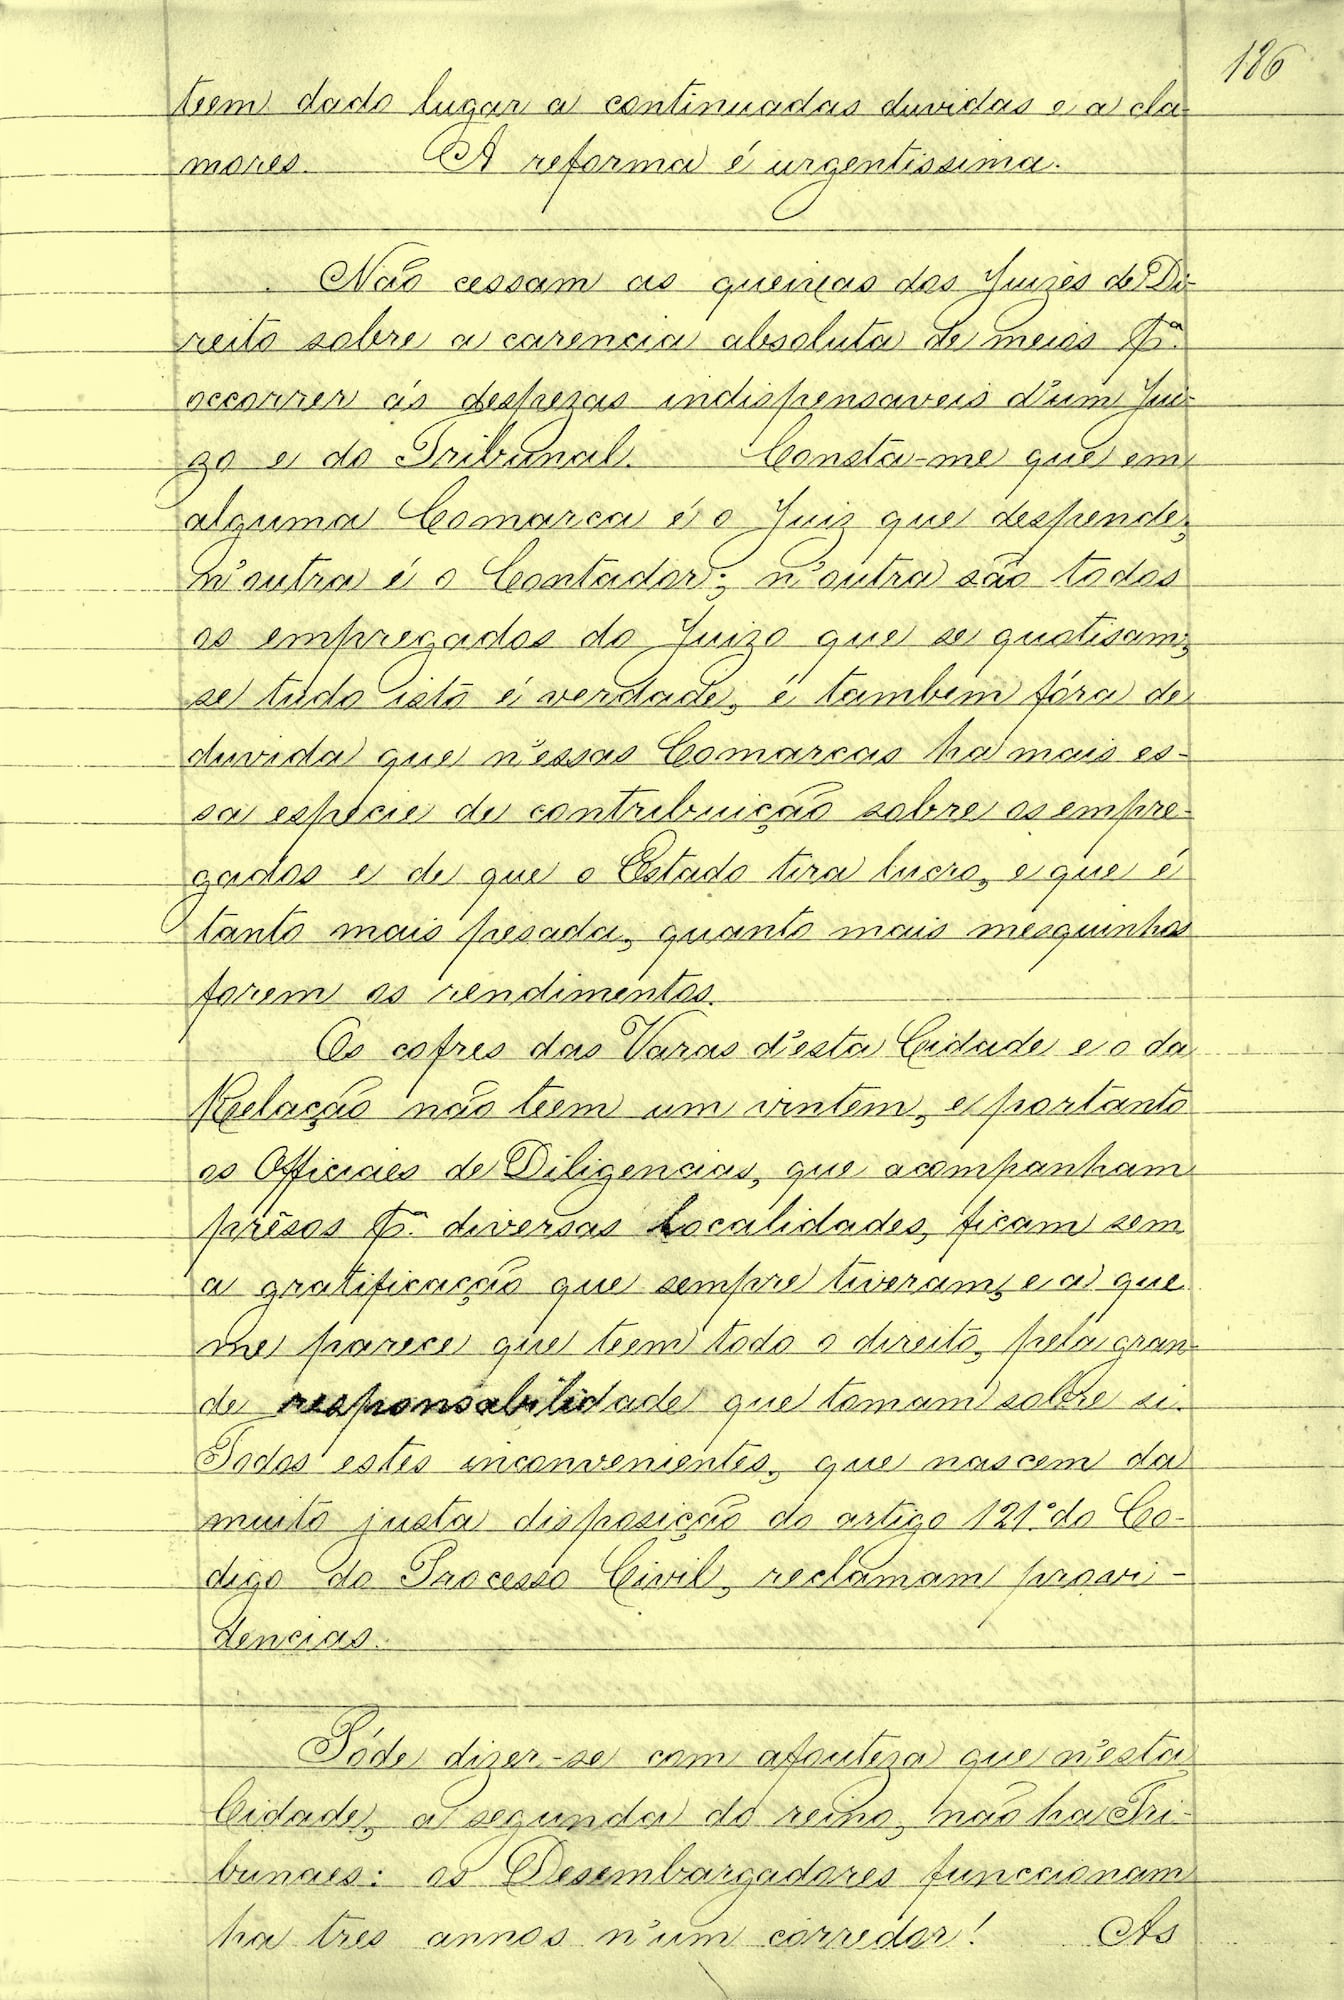 186
teem dado lugar a continuadas duvidas e a cla-
mores. A reforma é urgentissima.
Não cessam as queixas dos Juizes de Di-
reito sobre a carencia absoluta de meios p.ª
occorrer ás despezas indispensaveis d'um Jui-
zo e do Tribunal. Consta-me que em
alguma Comarca é o Juiz que despende;
n'outra é o Contador; n'outra são todos
os empregados do Juizo que se quotisam;
se tudo isto é verdade, é tambem fóra de
duvida que n'essas Comarcas ha mais es-
sa especie de contribuição sobre os empre-
gados e de que o Estado tira lucro, e que é
tanto mais pesada, quanto mais mesquinhos
forem os rendimentos.
Os cofres das Varas d'esta Cidade e o da
Relação não teem um vintem, e portanto
os Officiaes de Diligencias, que acompanham
prêsos p.ª diversas localidades, ficam sem
a gratificação que sempre tiveram, e a que
me parece que teem todo o direito, pela gran-
de responsabilidade que tomam sobre si.
Todos estes inconvenientes, que nascem da
muito justa disposição do artigo 121.º do Co-
digo do Processo Civil, reclamam provi-
dencias.
Póde dizer-se com afouteza que n'esta
Cidade, a segunda do reino, não ha Tri-
bunaes: os Desembargadores funccionam
ha tres annos n'um corredor! As